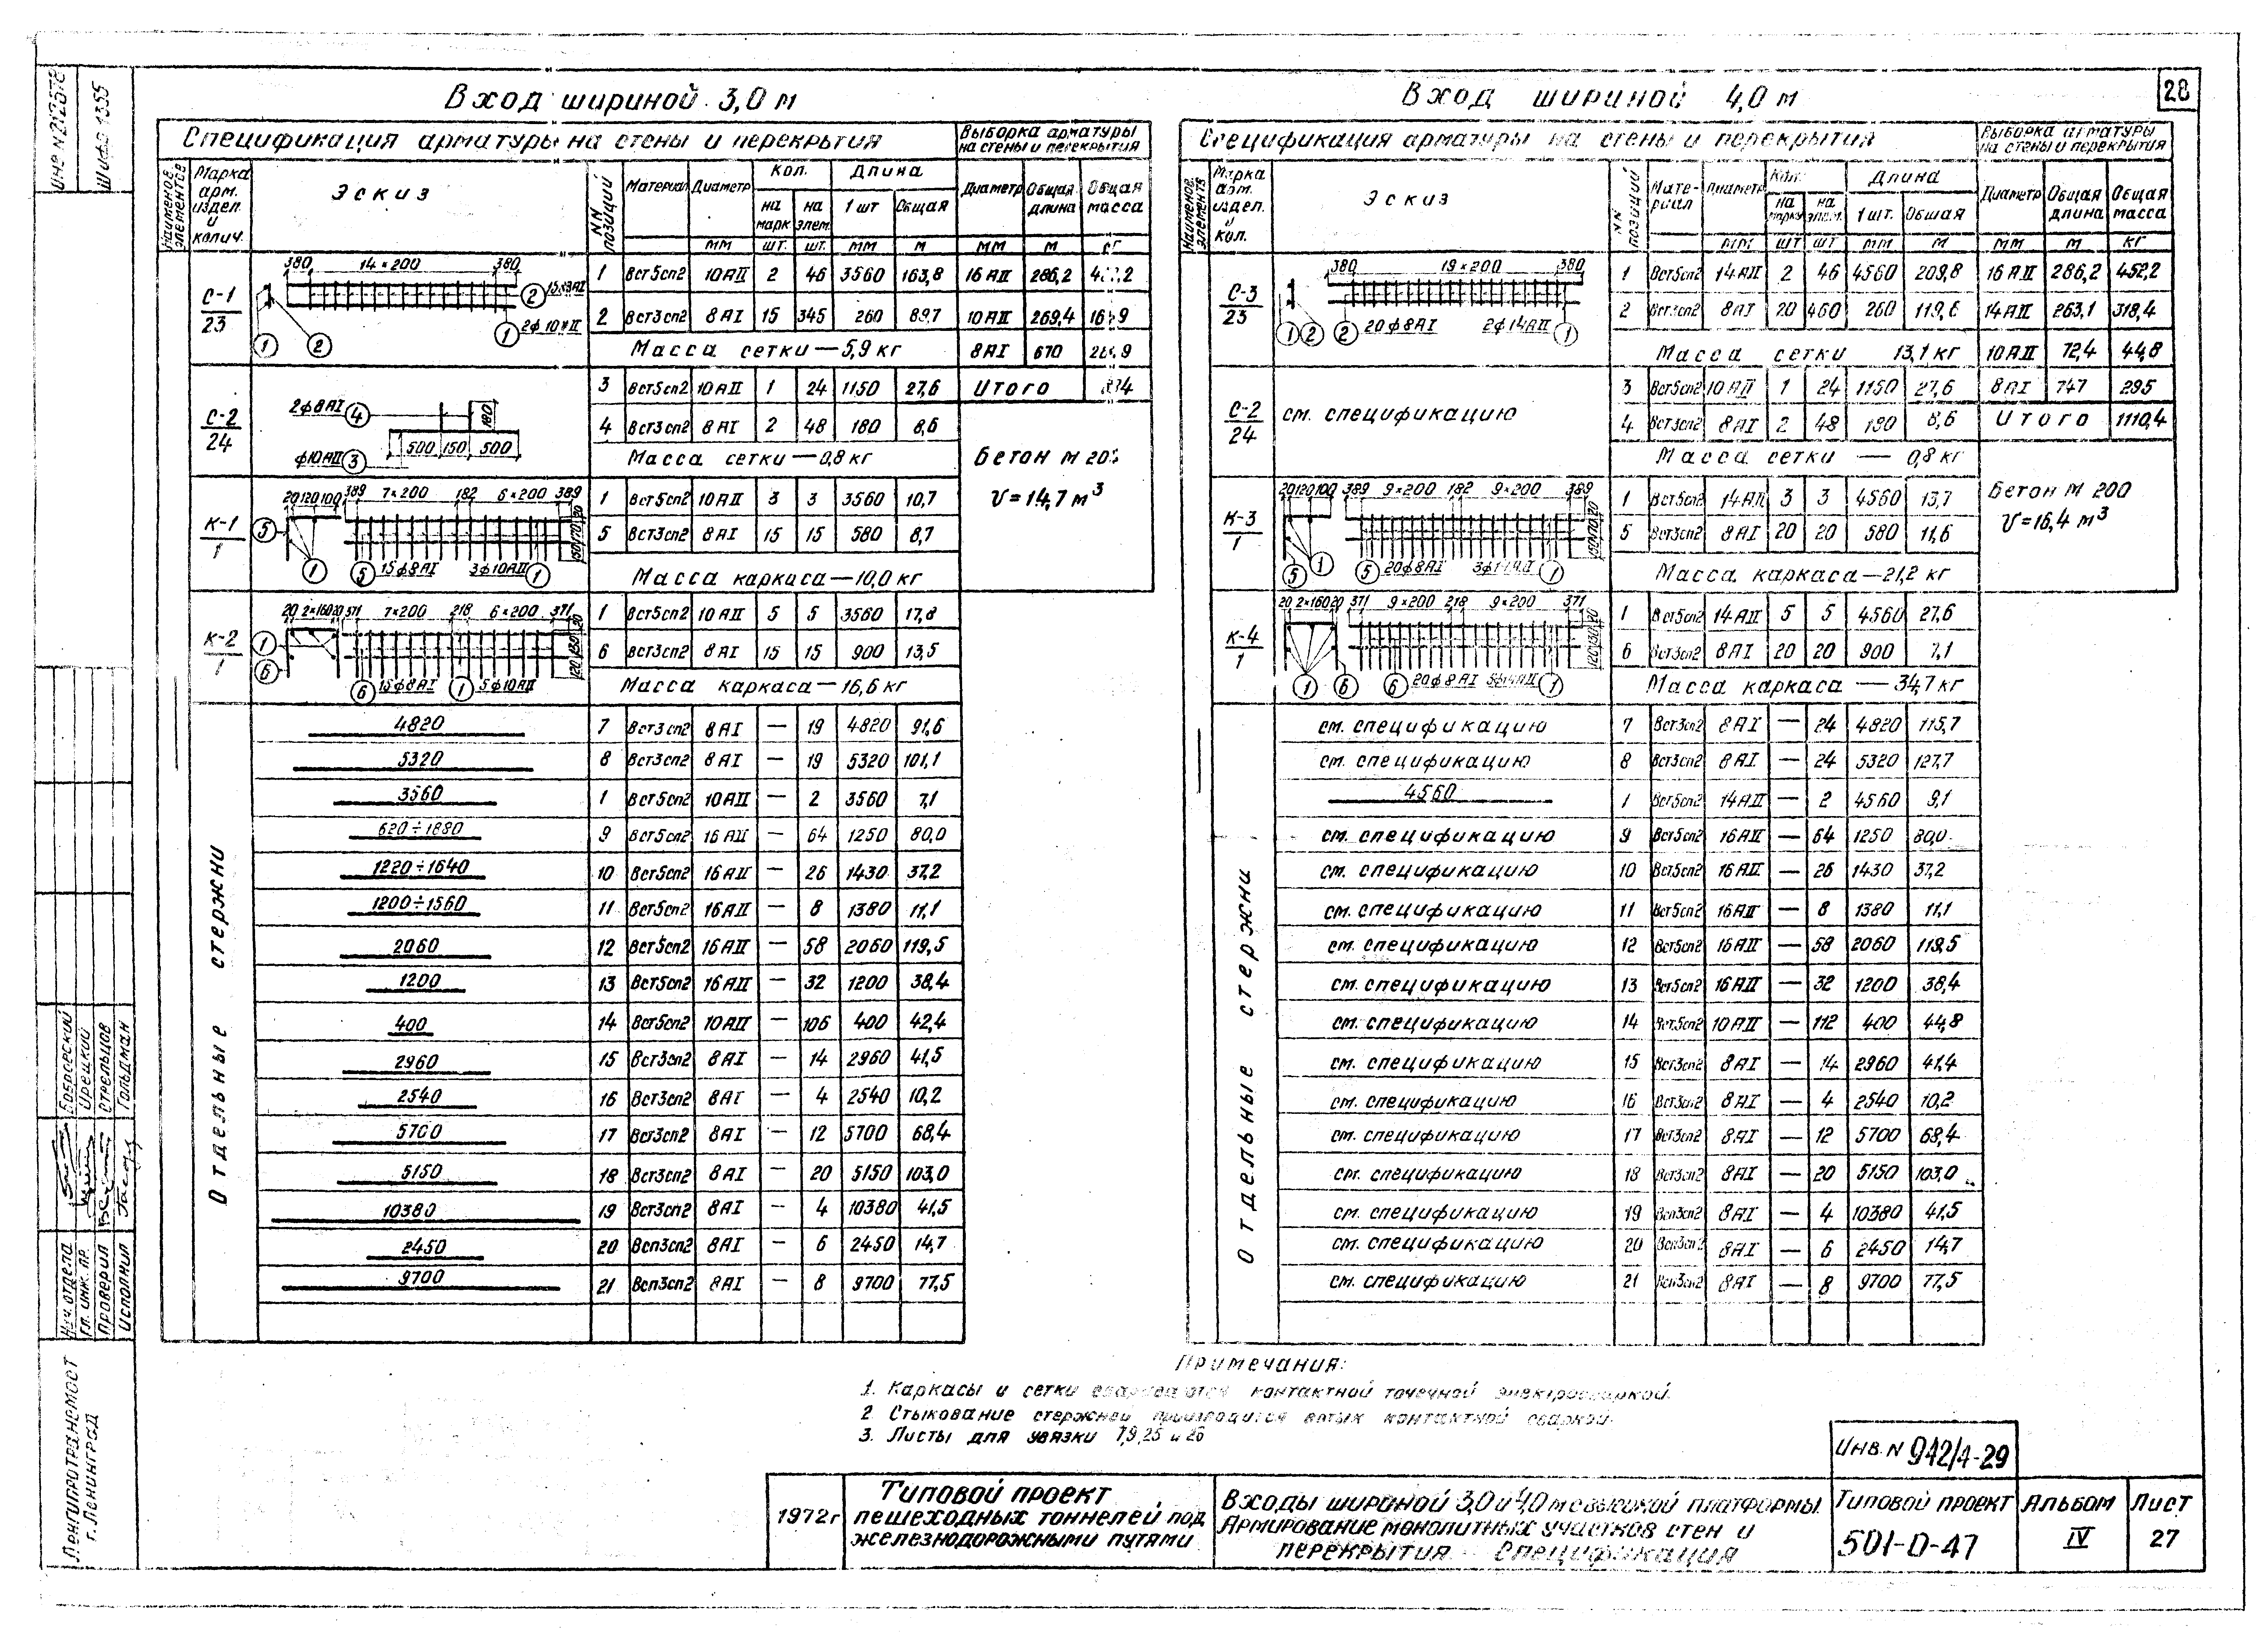 28
Инв № 212578
Шифр 1355
Вход шириной 3,0 м
Спецификация арматуры на стены и перекрытия
Выборка арматуры на стены и перекрытия
Наименов. элементов
Марка арм. издел. и колич.
Эскиз
NN позиций
Материал
Диаметр
Кол.
Длина
на марк
на элем.
1 шт
Общая
Диаметр
Общая длина
Общая масса
мм шт. шт. мм м мм м кг
С-1
23
380 14×200 380
2 15ф8АI
1 2ф10АII
1 2
1 Вст5сп2 10АII 2 46 3560 163,8 16АII 286,2
2 Вст3сп2 8АI 15 345 260 89,7 10АII 269,4
Масса сетки — 5,9 кг 8АI 670
С-2
24
2ф8АI 4
180
500 150 500
ф10АII 3
3 Вст5сп2 10АII 1 24 1150 27,6 Итого
4 Вст3сп2 8АI 2 48 180 8,6
Масса сетки — 0,8 кг
Бетон М
V=14,7 м³
К-1
1
20 120 100 389 7×200 182 6×200 389
5 1 5 15ф8АI 3ф10АII 1
1 Вст5сп2 10АII 3 3 3560 10,7
5 Вст3сп2 8АI 15 15 580 8,7
Масса каркаса — 10,0 кг
К-2
1
20 2×160 20 371 7×200 218 6×200 371
1 6 6 15ф8АI 1 5ф10АII
1 Вст5сп2 10АII 5 5 3560 17,8
6 Вст3сп2 8АI 15 15 900 13,5
Масса каркаса — 16,6 кг
Отдельные стержни
4820 7 Вст3сп2 8АI — 19 4820 91,6
5320 8 Вст3сп2 8АI — 19 5320 101,1
3560 1 Вст5сп2 10АII — 2 3560 7,1
620÷1880 9 Вст5сп2 16АII — 64 1250 80,0
1220÷1640 10 Вст5сп2 16АII — 26 1430 37,2
1200÷1560 11 Вст5сп2 16АII — 8 1380 11,1
2060 12 Вст5сп2 16АII — 58 2060 119,5
1200 13 Вст5сп2 16АII — 32 1200 38,4
400 14 Вст5сп2 10АII — 106 400 42,4
2960 15 Вст3сп2 8АI — 14 2960 41,5
2540 16 Вст3сп2 8АI — 4 2540 10,2
5700 17 Вст3сп2 8АI — 12 5700 68,4
5150 18 Вст3сп2 8АI — 20 5150 103,0
10380 19 Вст3сп2 8АI — 4 10380 41,5
2450 20 Всп3сп2 8АI — 6 2450 14,7
9700 21 Всп3сп2 8АI — 8 9700 77,5
Вход шириной 4,0 м
Спецификация арматуры на стены и перекрытия
Выборка арматуры на стены и перекрытия
Наименов. элементов
Марка арм. издел. и кол.
Эскиз
NN позиций
Материал
Диаметр
Кол.
Длина
на марку
на элем.
1 шт.
Общая
Диаметр
Общая длина
Общая масса
мм шт шт мм м мм м кг
С-3
23
380 19×200 380
1 2 2 20ф8АI 2ф14АII 1
1 Вст5сп2 14АII 2 46 4560 209,8 16АII 286,2 452,2
2 Вст3сп2 8АI 20 460 260 119,6 14АII 263,1 318,4
Масса сетки 13,1 кг 10АII 72,4 44,8
С-2
24
см. спецификацию
3 Вст5сп2 10АII 1 24 1150 27,6 8АI 747 295
4 Вст3сп2 8АI 2 48 190 8,6 Итого 1110,4
Масса сетки — 0,8 кг
Бетон М 200
V=16,4 м³
К-3
1
20 120 100 389 9×200 182 9×200 389
5 1 5 20ф8АI 3ф14АII 1
1 Вст5сп2 14АII 3 3 4560 13,7
5 Вст3сп2 8АI 20 20 580 11,6
Масса каркаса — 21,2 кг
К-4
1
20 2×160 20 371 9×200 218 9×200 371
1 6 6 20ф8АI 5ф14АII 1
1 Вст5сп2 14АII 5 5 4560 27,6
6 Вст3сп2 8АI 20 20 900 7,1
Масса каркаса — 34,7 кг
Отдельные стержни
см. спецификацию 7 Вст3сп2 8АI — 24 4820 115,7
см. спецификацию 8 Вст3сп2 8АI — 24 5320 127,7
4560 1 Вст5сп2 14АII — 2 4560 9,1
см. спецификацию 9 Вст5сп2 16АII — 64 1250 80,0
см. спецификацию 10 Вст5сп2 16АII — 26 1430 37,2
см. спецификацию 11 Вст5сп2 16АII — 8 1380 11,1
см. спецификацию 12 Вст5сп2 16АII — 58 2060 119,5
см. спецификацию 13 Вст5сп2 16АII — 32 1200 38,4
см. спецификацию 14 Вст5сп2 10АII — 112 400 44,8
см. спецификацию 15 Вст3сп2 8АI — 14 2960 41,4
см. спецификацию 16 Вст3сп2 8АI — 4 2540 10,2
см. спецификацию 17 Вст3сп2 8АI — 12 5700 68,4
см. спецификацию 18 Вст3сп2 8АI — 20 5150 103,0
см. спецификацию 19 Всп3сп2 8АI — 4 10380 41,5
см. спецификацию 20 Всп3сп2 8АI — 6 2450 14,7
см. спецификацию 21 Всп3сп2 8АI — 8 9700 77,5
Примечания:
1. Каркасы и сетки свариваются контактной точечной электросваркой.
2. Стыкование стержней производится встык контактной сваркой.
3. Листы для увязки 7,9,25 и 26
Инв. N 942/4-29
1972г
Типовой проект
пешеходных тоннелей под
железнодорожными путями
Входы шириной 3,0 и 4,0 м с высокой платформы.
Армирование монолитных участков стен и
перекрытия. Спецификация
Типовой проект
501-0-47
Альбом
IV
Лист
27
Нач. отдела Бобровский
Гл. инж. пр. Урецкий
Проверил Стрельцов
Исполнил Гольдман
Ленгипротрансмост
г. Ленинград